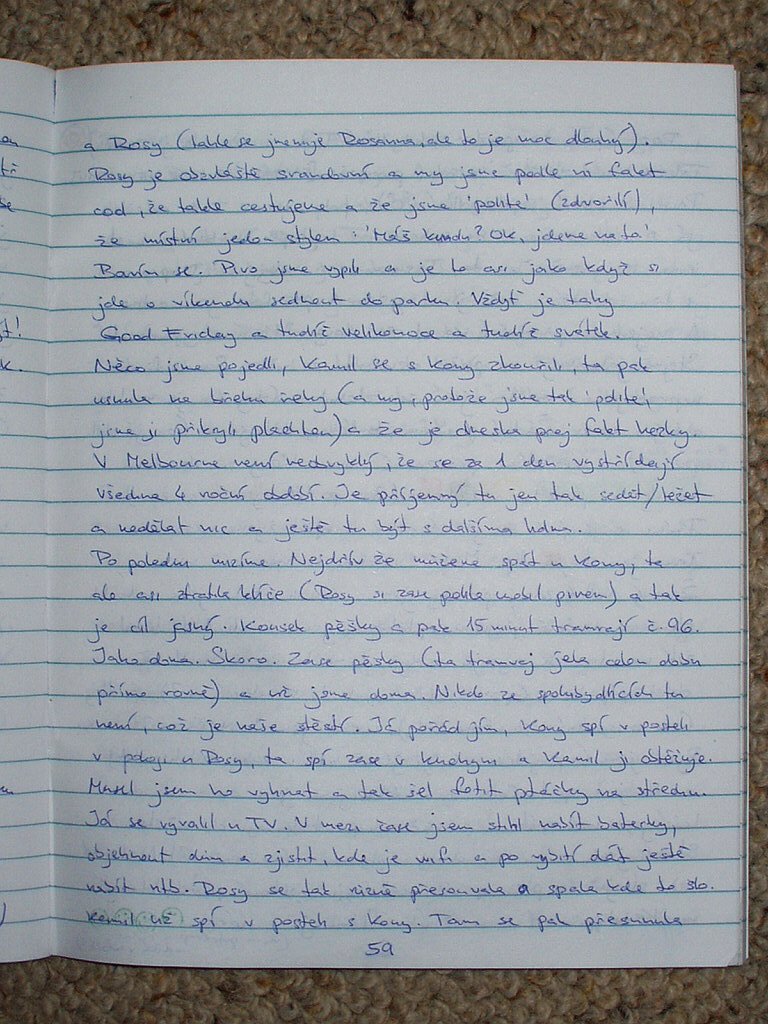 a Rosy (tahle se jmenuje Rosanna, ale to je moc dlouhý).
Rosy je obzvláště srandovní a my jsme podle ní fakt
cool, že takle cestujeme a že jsme 'polite' (zdvořilí),
že místní jedou stylem: 'Máš kundu? Ok, jdeme na to'
Bavím se. Pivo jsme vypili a je to asi jako když si
jde o víkendu sednout do parku. Vždyť je taky
Good Friday a tudíž velikonoce a tudíž svátek.
Něco jsme pojedli, Kamil se s Kony zkouřili, ta pak
usnula na břehu řeky (a my, protože jsme tak 'polite',
jsme ji přikryli plachtou) a že je dneska prej fakt hezky.
V Melbourne není neobvyklý, že se za 1 den vystřídají
všechna 4 roční období. Je příjemný tu jen tak sedět/ležet
a nedělat nic a ještě tu být s dalšíma lidma.
Po poledni mizíme. Nejdřív že můžeme spát u Kony, ta
ale asi ztratila klíče (Rosy si zase polila mobil pivem) a tak
je cíl jasný. Kousek pěšky a pak 15 minut tramvají č. 96.
Jako doma. Skoro. Zase pěšky (ta tramvaj jela celou dobu
přímo rovně) a už jsme doma. Nikdo ze spolubydlících tu
není, což je naše štěstí. Já pořád jím, Kony spí v posteli
v pokoji u Rosy, ta spí zase v kuchyni a Kamil ji obtěžuje.
Musel jsem ho vyhnat a tak šel fotit ptáčky na střechu.
Já se vyvalil u TV. V mezičase jsem stihl nabít baterky,
objehnout dům a zjistit, kde je wifi a po vybití dát ještě
nabít ntb. Rosy se tak různě přesouvala a spala kde to šlo.
Kamil už spí v posteli s Kony. Tam se pak přesunula
59